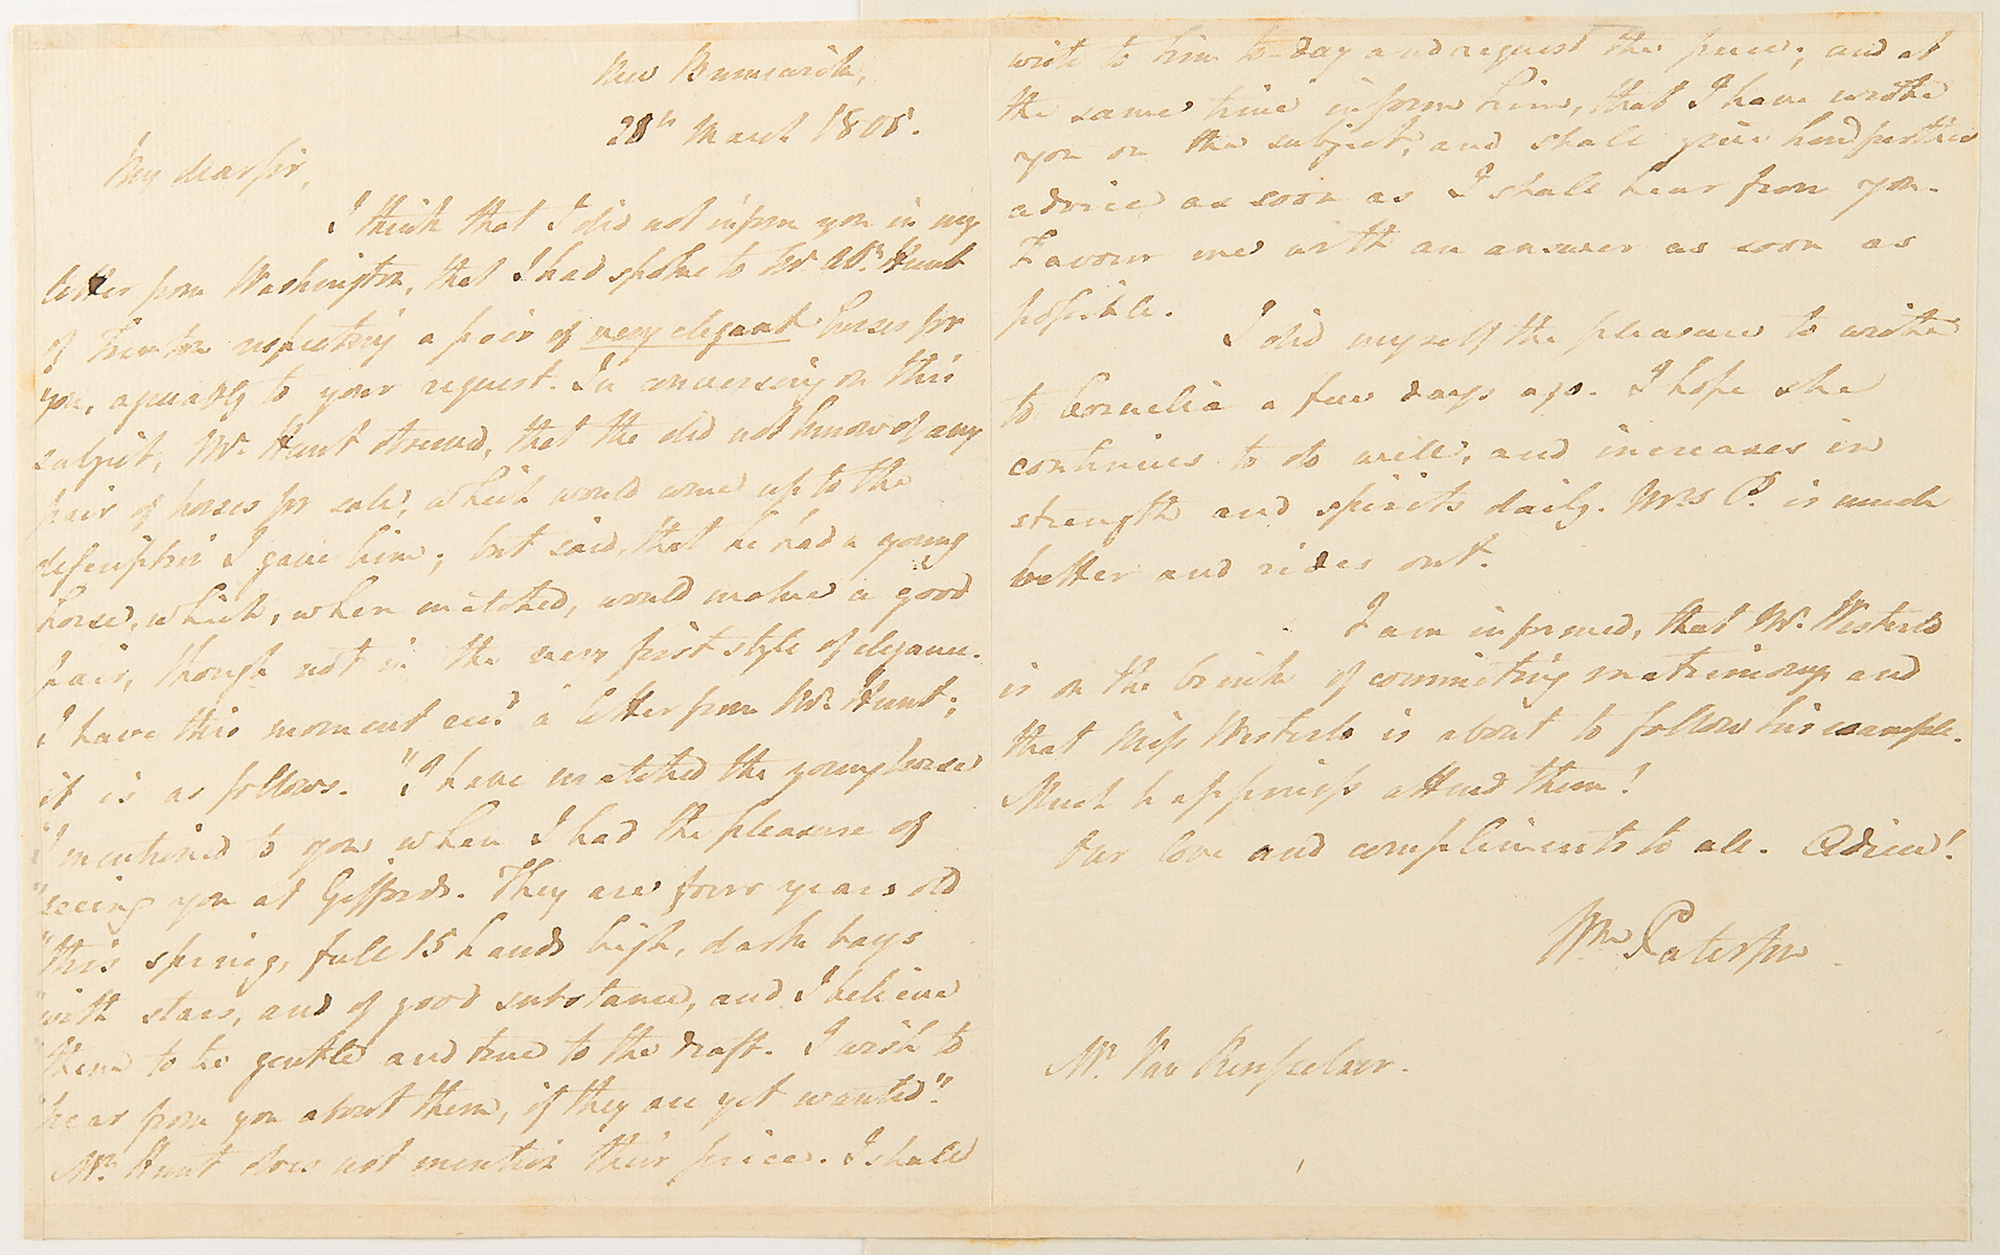 New Brunswick,
28th March 1805.
My dear sir,
I think that I did not inform you in my
letter from Washington, that I had spoke to Mr. Abm. Hunt
of Trenton respecting a pair of very elegant horses for
you, agreeably to your request. In conversing on this
subject, Mr. Hunt observed, that the did not know of any
pair of horses for sale, which would come up to the
description I gave him; but said, that he had a young
horse, which, when matched, would make a good
pair, though not in the very first style of elegance.
I have this moment recd. a letter from Mr. Hunt;
it is as follows. "I have matched the young horse
"I mentioned to you when I had the pleasure of
"seeing you at Giffords. They are four years old
"this spring, full 15 hands high, dark bays
"with stars, and of good substance, and I believe
"them to be gentle and true to the draft. I wish to
"hear from you about them, if they are yet wanted".
Mr. Hunt does not mention their price. I shall
write to him to-day and request the price; and at
the same time inform him, that I have wrote
you on the subject, and shall give him further
advice as soon as I shall hear from you.
Favour me with an answer as soon as
possible.
I did myself the pleasure to write
to Cornelia a few days ago. I hope she
continues to do well, and increases in
strength and spirits daily. Mrs. P. is much
better and rides out.
I am informed, that Mr. Westerlo
is on the brink of committing matrimony and
that Miss Westerlo is about to follow his example.
Much happiness attend them!
Our love and compliments to all. Adieu!
Wm Paterson
Mr. Van Rensselaer.